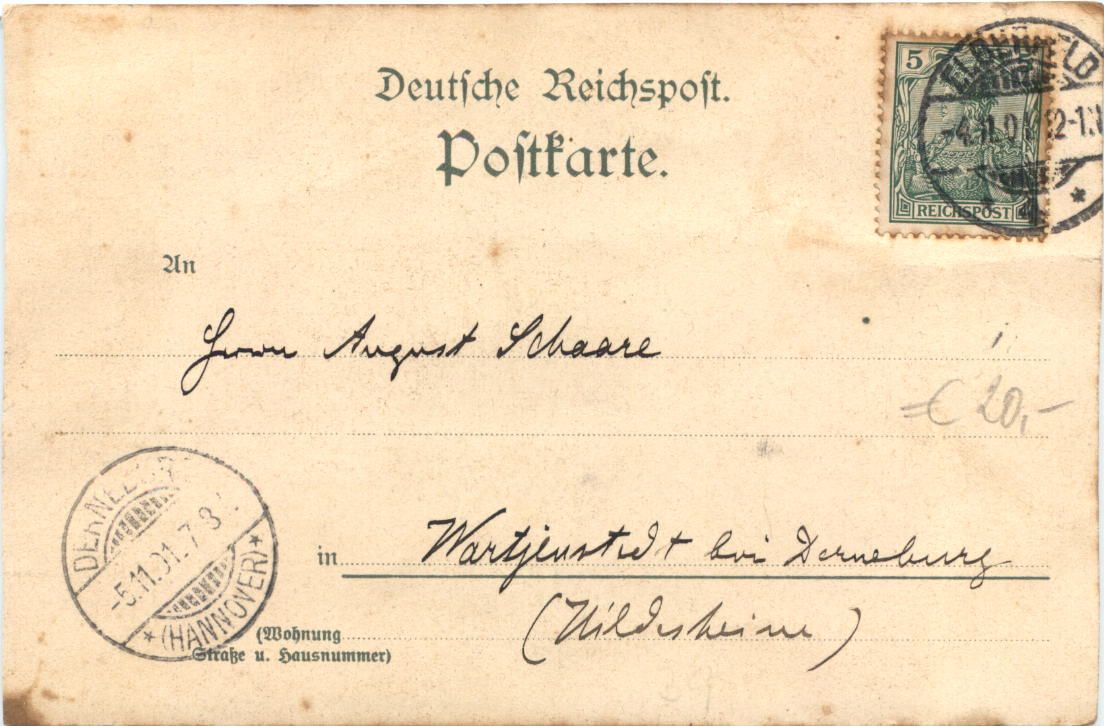 Deutsche Reichspost.
Postkarte.
5
REICHSPOST
An
Herrn August Schaare
=€ 20,-
-5.11.01. 7-8
* (HANNOVER) *
in Wartjenstedt bei Derneburg
(Hildesheim)
(Wohnung
Straße u. Hausnummer)